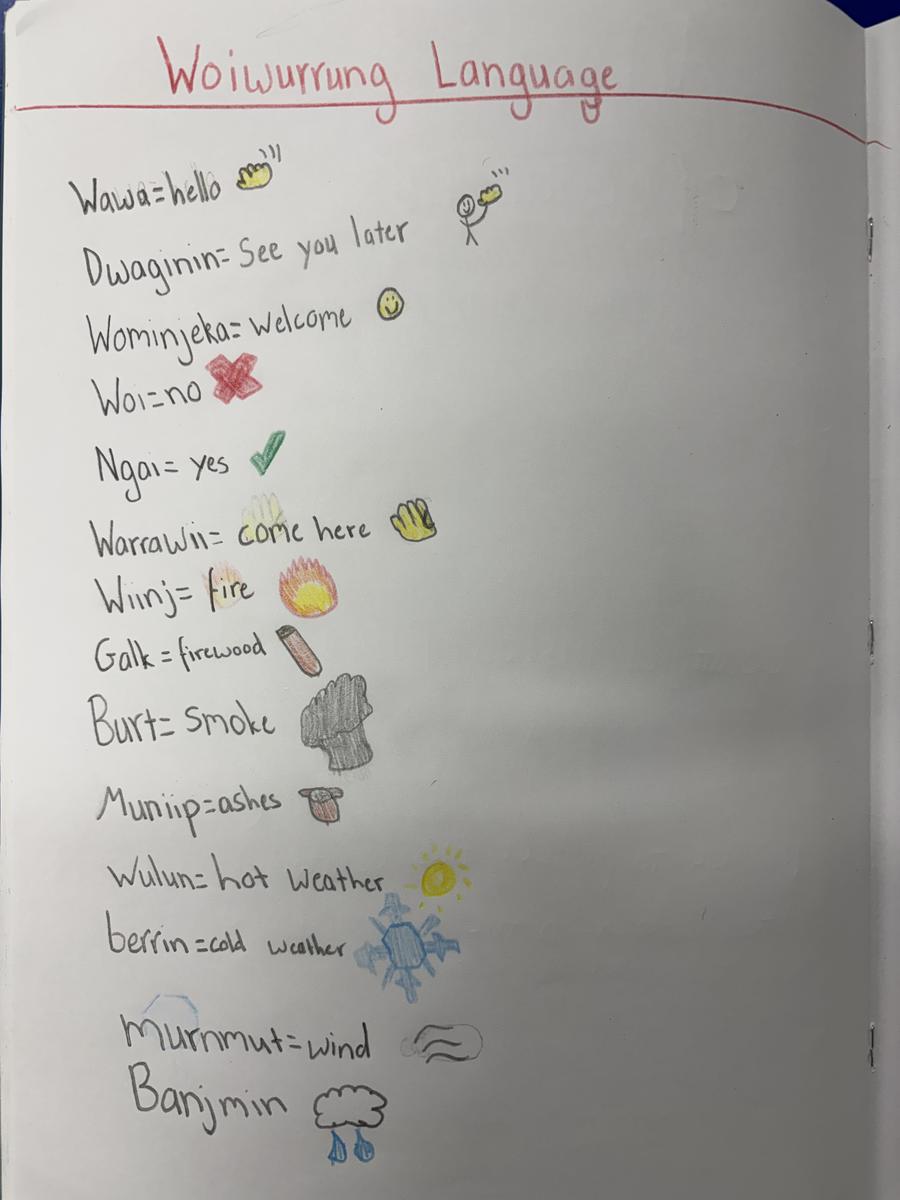 Woiwurrung Language
Wawa=hello
Dwaginin= See you later
Wominjeka= Welcome
Woi=no
Ngai= yes
Warrawii= come here
Wiinj= fire
Galk = firewood
Burt= Smoke
Muniip=ashes
Wulun= hot weather
berrin =cold weather
Murnmut= wind
Banjmin